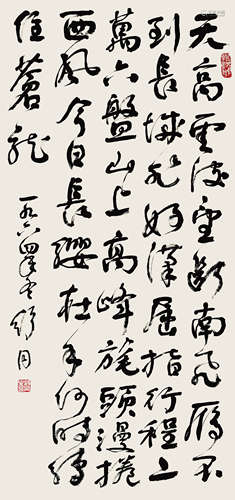 天高雲淡望斷南飛雁不
到長城非好漢屈指行程二
萬六盤山上高峰旄頭漫捲
西風今日長纓在手何時縛
住蒼龍
一九六四年舒同